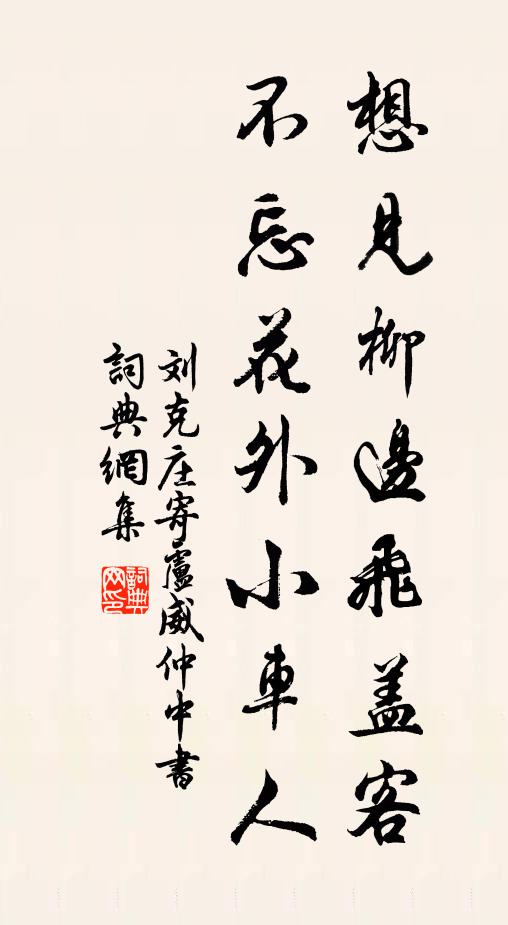 想見柳邊飛盖客
不忘花外小車人
刘克庄寄盧威仲中書
詞典網集
詞典网印